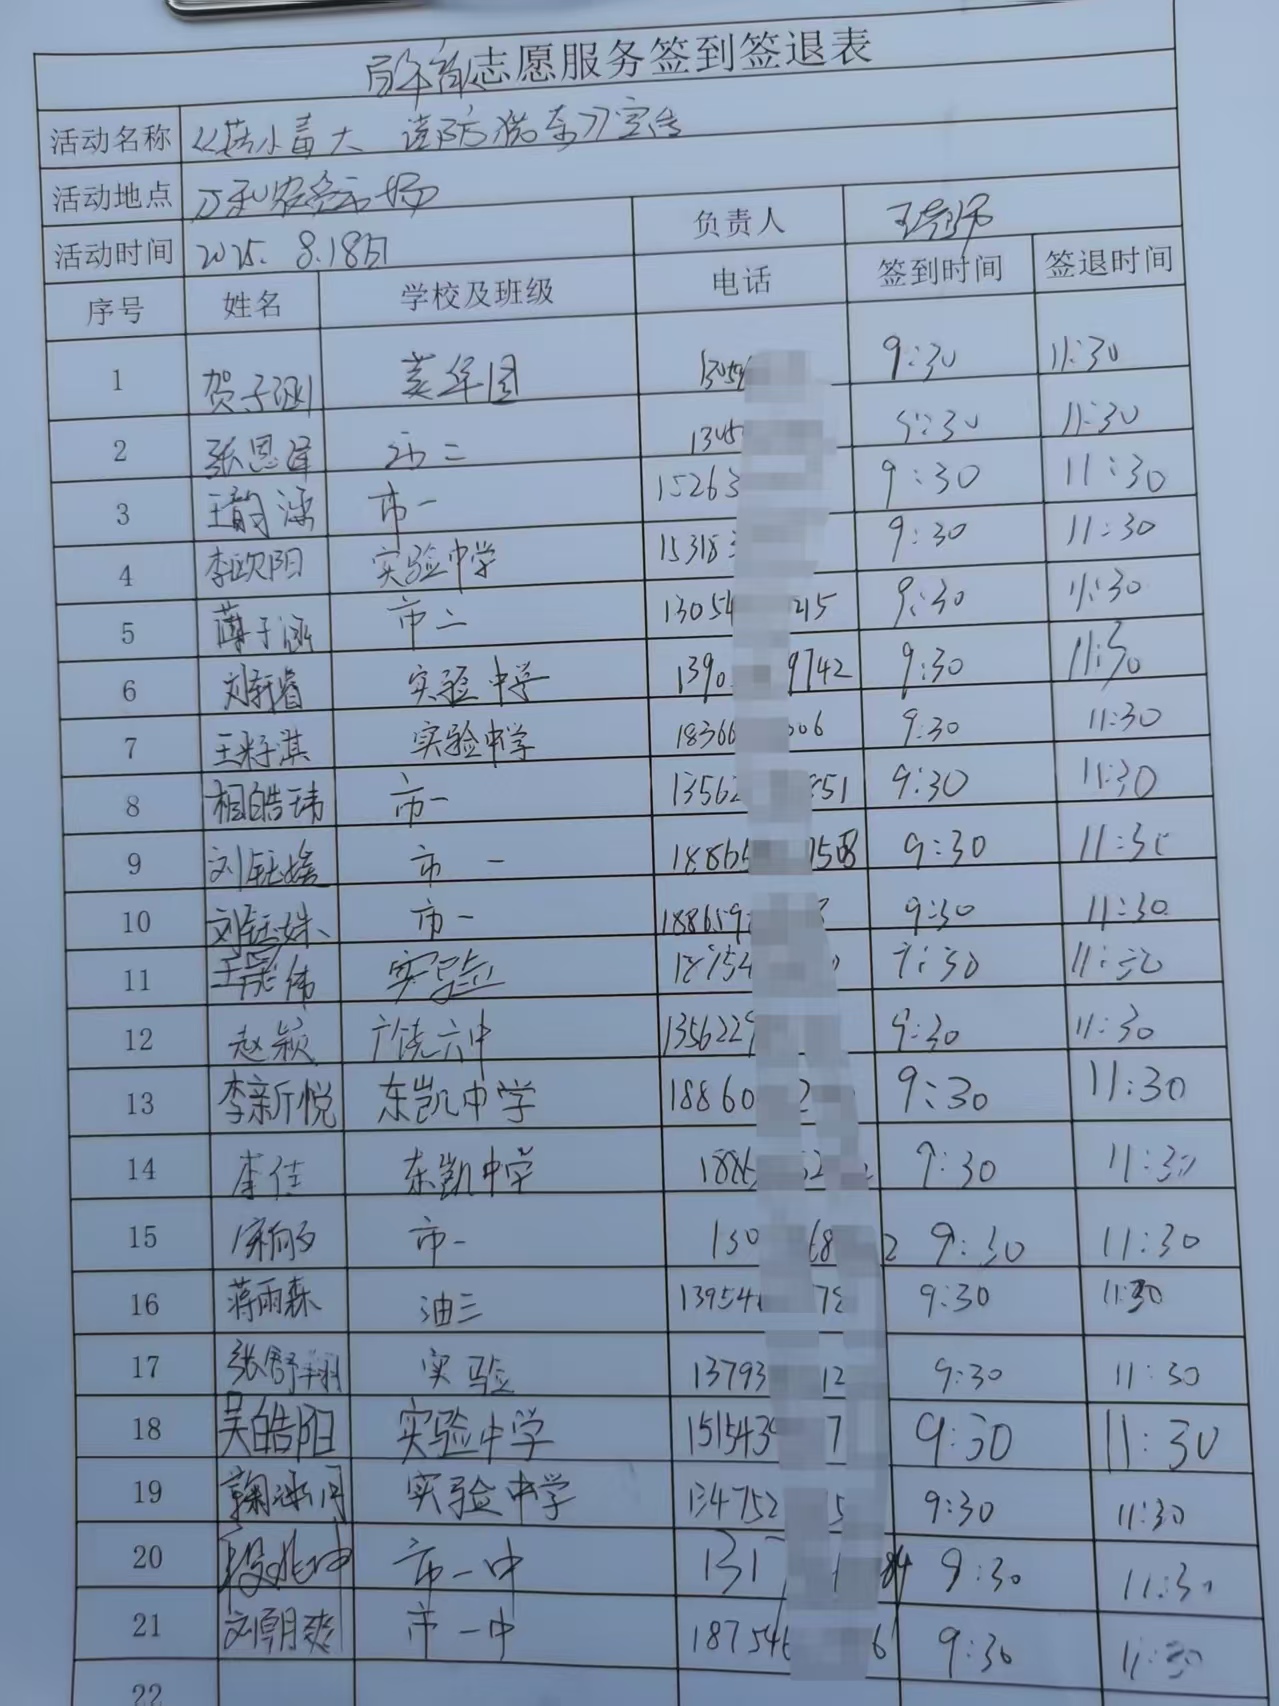 志愿服务签到签退表
活动名称 宣传
活动地点 市场
活动时间 2025. 8.18日 负责人
序号 姓名 学校及班级 电话 签到时间 签退时间
1 贺子涵 菁华园 1305 9:30 11:30
2 张恩泽 二 1345 9:30 11:30
3 王韵 市一 15263 9:30 11:30
4 李欧阳 实验中学 15318 9:30 11:30
5 薄子涵 市二 1305 15 9:30 11:30
6 刘轩睿 实验中学 1390 9742 9:30 11:30
7 王籽淇 实验中学 18366 06 9:30 11:30
8 相皓玮 市一 13562 851 9:30 11:30
9 刘钰嫒 市一 1886 9:30 11:30
10 刘钰姝 市一 188659 9:30 11:30
11 王 伟 实验 18754 9:30 11:30
12 赵颖 广饶六中 1356229 9:30 11:30
13 李新悦 东凯中学 18860 2 9:30 11:30
14 李佳 东凯中学 1886 52 9:30 11:30
15 市一 130 68 2 9:30 11:30
16 蒋雨森 油三 13954 78 9:30 11:30
17 张舒翔 实验 13793 12 9:30 11:30
18 吴皓阳 实验中学 1515439 7 9:30 11:30
19 鞠 月 实验中学 134752 5 9:30 11:30
20 段兆坤 市一中 131 84 9:30 11:30
21 刘朝爽 市一中 18754 6 9:30 11:30
22